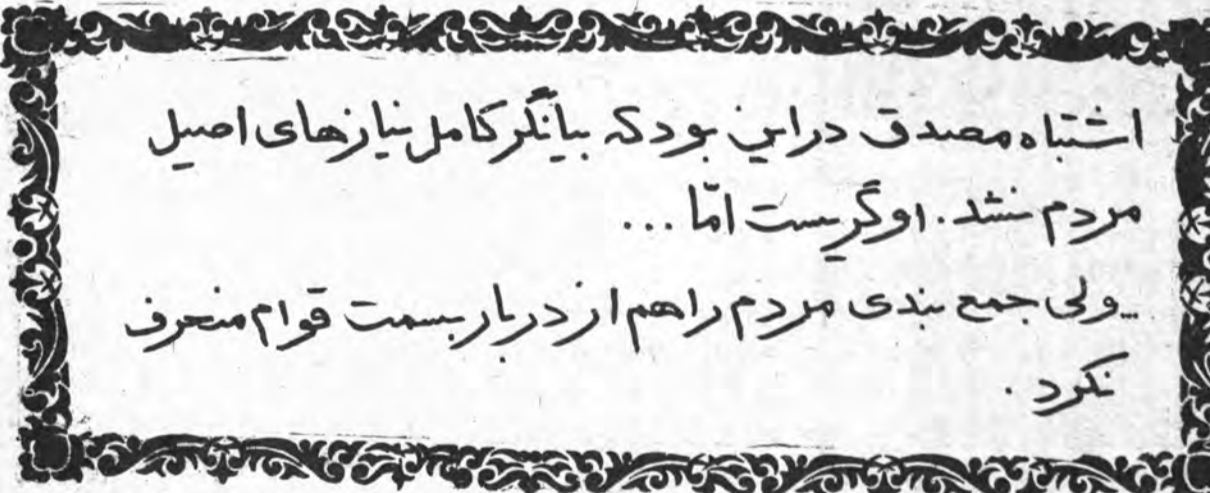 اشتباه مصدق در این بود که بیانگر کامل نیازهای اصیل
مردم نشد. او گریست امّا ...
...ولی جمع بندی مردم را هم از دربار بسمت قوام منحرف
نکرد.